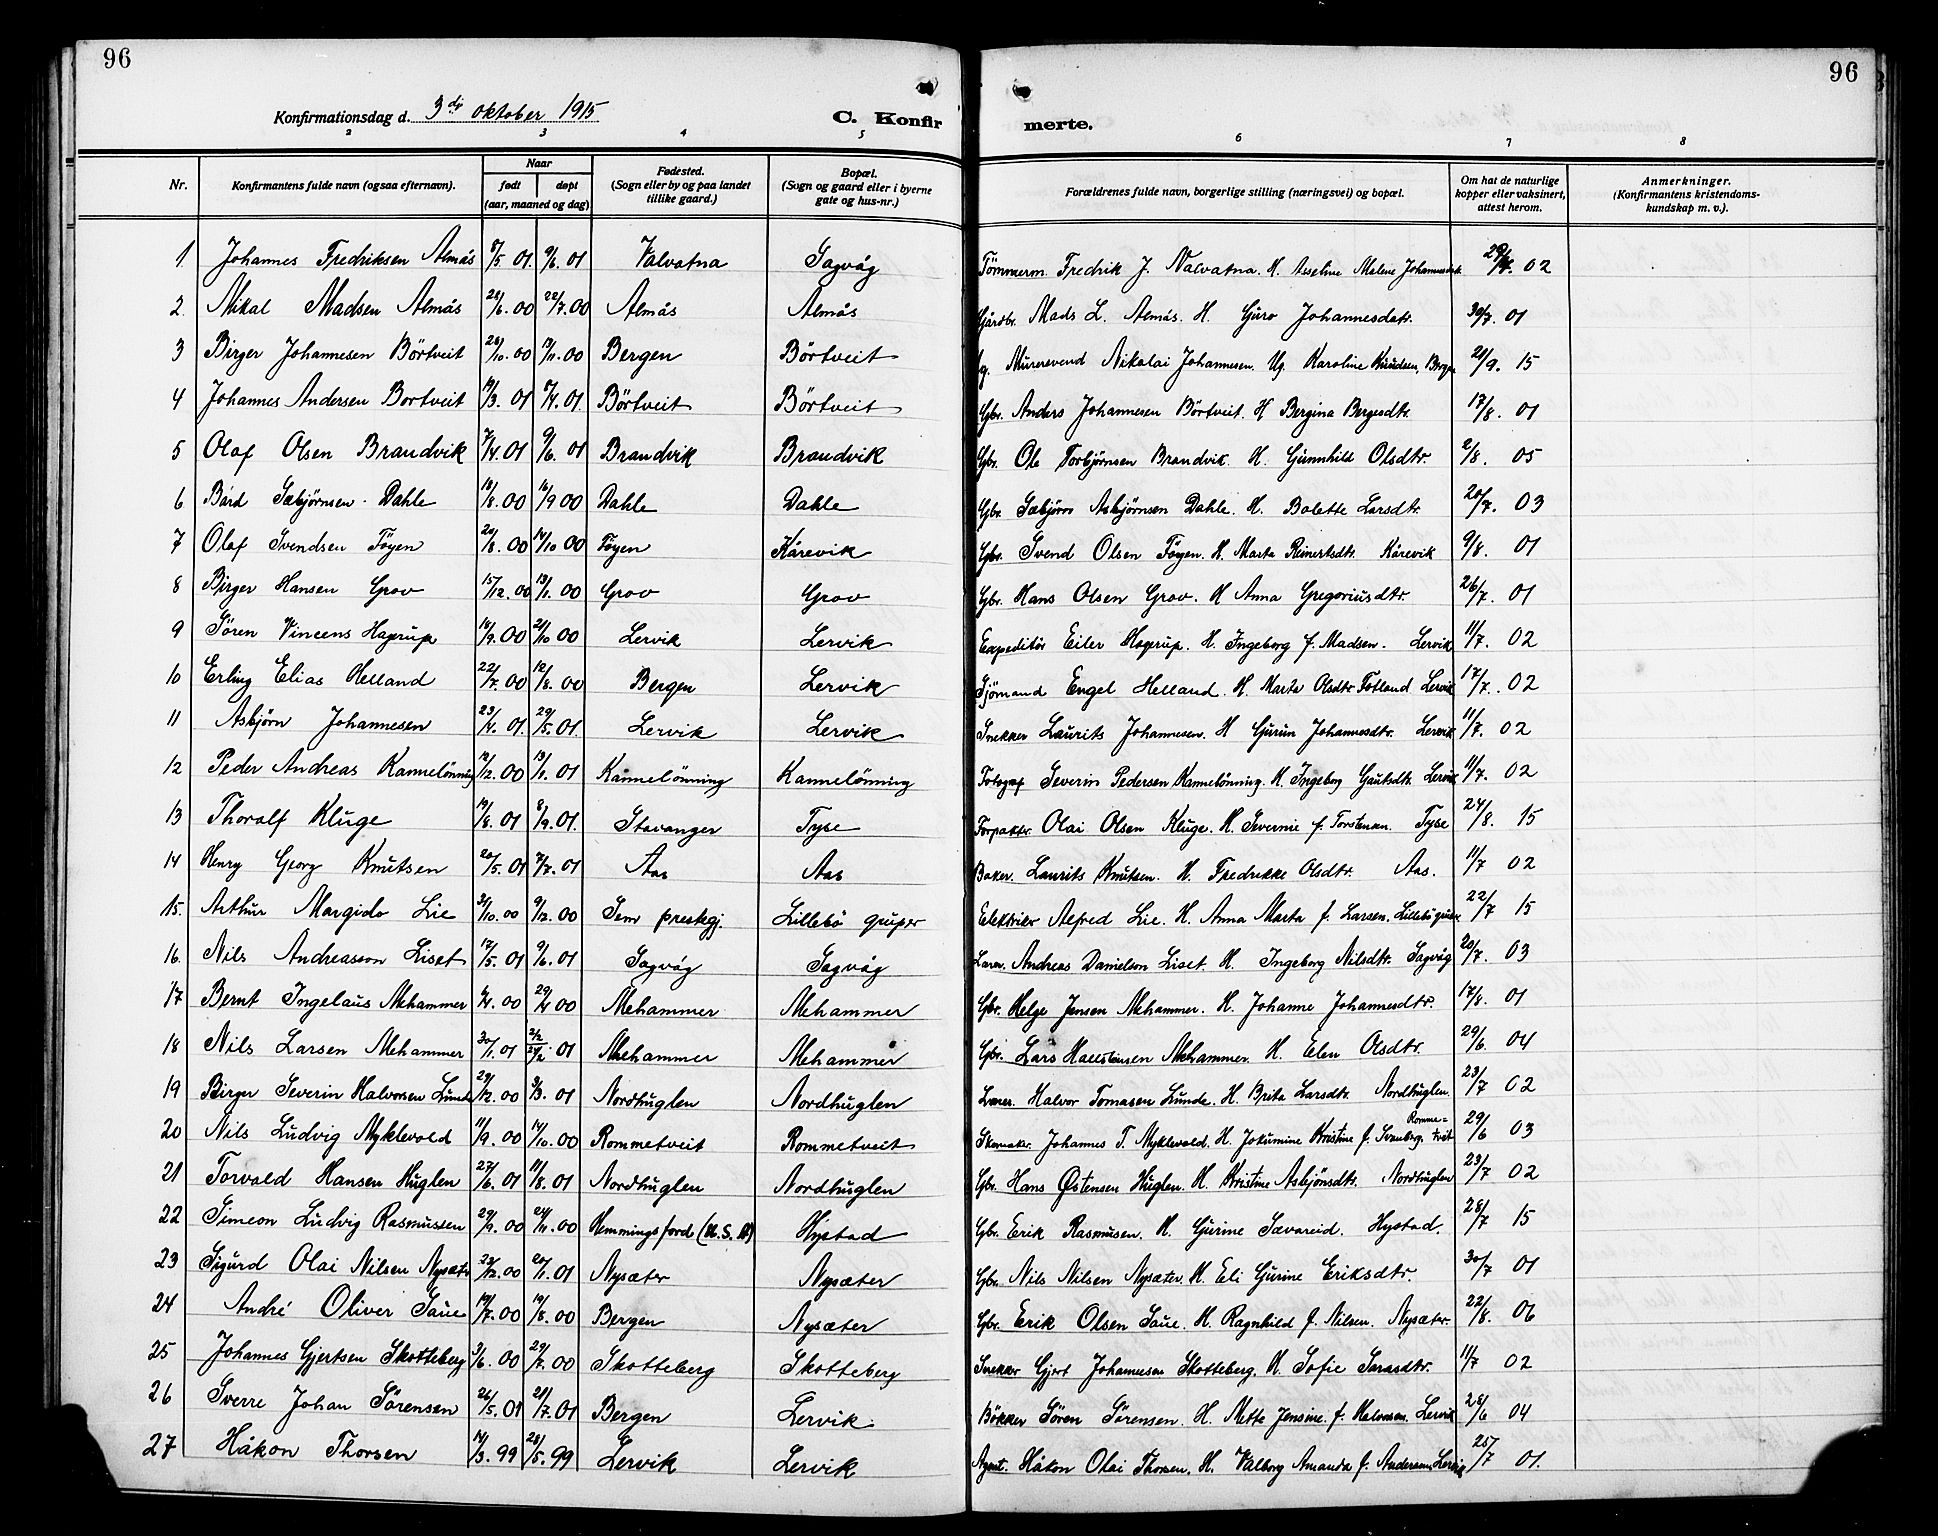 96
96
Konfirmationsdag d. 3dje oktober 1915
C. Konfir merte.
2 3 4 5 6 7 8
Nr. Konfirmantens fulde navn (ogsaa efternavn). Naar født døpt (aar, maaned og dag) Fødested. (Sogn eller by og paa landet tillike gaard.) Bopæl. (Sogn og gaard eller i byerne gate og hus-nr.) Forældrenes fulde navn, borgerlige stilling (næringsvei) og bopæl. Om hat de naturlige kopper eller vaksinert, attest herom. Anmerkninger. (Konfirmantens kristendoms-kundskap m. v.).
1. Johannes Fredriksen Almås 8/5. 01 9/6. 01 Valvatna Sagvåg Tømmerm. Fredrik J. Valvatna. H. Aseline Malene 02
2. Mikal Madsen Almås 22/7. 00 Almås Almås Gårdbr. Mads L. Almås. H. Guro Johannesdatr. 30/7. 01
3 Birger Johannesen Börtveit 28/10. 00 00 Bergen Börtveit Nikolai Johannesen. Ug. Karoline Knudsen, Bergen 21/9. 15
4 Johannes Andersen Bortveit 19/3. 01 8/4. 01 Börtveit Börtveit Gbr. Anders Johannesen Börtveit. H Bergina Bergesdtr. 17/8. 01
5 Olaf Olsen Brandvik 7/4. 01 9/6. 01 Brandvik Brandvik Gbr. Ole Torbjørnsen Brandvik. H. Gunnhild Olsdtr. 2/8. 05
6 Bård Sæbjörnsen Dahle 18/8. 00 16/9 00 Dahle Dahle Gbr. Sæbjörn Asbjörnsen Dahle. H. Bolette Larsdtr. 20/7. 03
7 Olaf Svendsen Föyen 20/8. 00 14/10 00 Föyen Kårevik Gbr. Svend Olsen Föyen. H. Marta Reinertsdtr. Kårevik 9/8. 01
8 Birger Hansen Grov 15/12. 00 13/1. 00 Grov Grov Gbr. Hans Olsen Grov. H Anna Gregoriusdtr. 26/7. 01
9 Sören Vincens Hagerup 16/9. 00 21/10 00 Lervik Lervik Expeditör Eiler Hagerup. H. Ingeborg f. Madsen. Lervik 11/7. 02
10 Erling Elias Helland 22/7. 00 12/8. 00 Bergen Lervik Sjömand Engel Helland. H. Marta Olsdtr Totland Lervik 17/7. 02
11 Asbjörn Johannesen 23/4. 01 29/5. 01 Lervik Lervik Snekker Laurits Johannesen. H Gurun Johannesdtr. Lervik 11/7. 02
12 Peder Andreas Kannelönning 12/12. 00 13/1. 01 Kannelönning Kannelönning Fotograf Severin Pedersen Kannelönning. H. Ingeborg Gautsdtr. Lervik 11/7. 02
13 Thoralf Kluge 19/8. 01 8/9. 01. Stavanger Tyse Forpakter. Olai Olsen Kluge. H. Severine f. Torstensen. Tyse 24/8. 15
14 Henry Georg Knutsen 20/5. 01 7/7. 01 Aas Aas Baker. Laurits Knutsen. H. Fredrikke Olsdtr. Aas. 11/7 02
15. Arthur Margido Lie 31/10. 00 9/12. 00 Sem prestegj. Lillebö gruper Elektriker Alfred Lie. H. Anna Marta f. Larsen. Lillebö gruber 22/7 15
16. Nils Andreasson Liset 17/5. 01 9/6. 01 Sagvåg Sagvåg Andreas Danielson Liset. H. Ingeborg Nilsdtr. Sagvåg 20/7. 03
17 Bernt Ingelaus Mehammer 00 29/4 00 Mehammer Mehammer Gbr. Helge Jensen Mehammer. H. Johanne Johannesdtr. 17/8. 01
18 Nils Larsen Mehammer 30/1. 01 01 Mehammer Mehammer Gbr. Lars Mehammer. H. Elen Olsdtr. 29/6. 04
19 Birger Severin Halvorsen Lunde 29/12. 00 3/3. 01 Nordhuglen Nordhuglen Halvor Tomasen Lunde. H. Brita Larsdtr. Nordhuglen. 23/7 02
20 Nils Ludvig Myklevold 11/9. 00 14/10. 00 Rommetveit Rommetveit Skomaker. Johannes T. Myklevold. H. Jokumine Kristine f. Svanberg. Rommetveit 29/6 03
21 Torvald Hansen Huglen 27/6. 01 11/8. 01 Nordhuglen Nordhuglen Gbr. Hans Østensen Huglen. H. Kristine Asbjönsdtr. Nordhuglen 23/7 02
22 Simeon Ludvig Rasmussen 29/9. 00 24/11. 00 Hemmingsford (U. S. A) Hystad Gbr. Erik Rasmusen. H. Gurine Sævareid. Hystad. 28/7 15
23 Sigurd Olai Nilsen Nysæter 23/12. 00 20/1. 01 Nysæter Nysæter Gbr. Nils Nilsen Nysæter. H. Eli Gurine Eriksdtr. 30/7 01
24 André Oliver Saue 19/7. 00 19/8. 00 Bergen Nysæter Gbr. Erik Olsen Saue. H. Ragnhild f. Nilsen. Nysæter. 22/8. 06
25 Johannes Gjertsen Skotteberg 3/6. 00 29/7. 00 Skotteberg Skotteberg Snekker Gjert Johannesen Skotteberg. H Sofie Larsdtr. 11/7 02
26 Sverre Johan Sörensen 26/5. 01 21/7. 01 Bergen Lervik. Bökker Sören Sörensen. H. Mette Jensine f. Halvorsen. Lervik 28/6 04
27 Håkon Thorsen 14/3. 99 28/5. 99 Lervik Lervik Agent. Håkon Olai Thorsen. H. Valborg Amanda f. Andersen, Lervik 25/7 01.